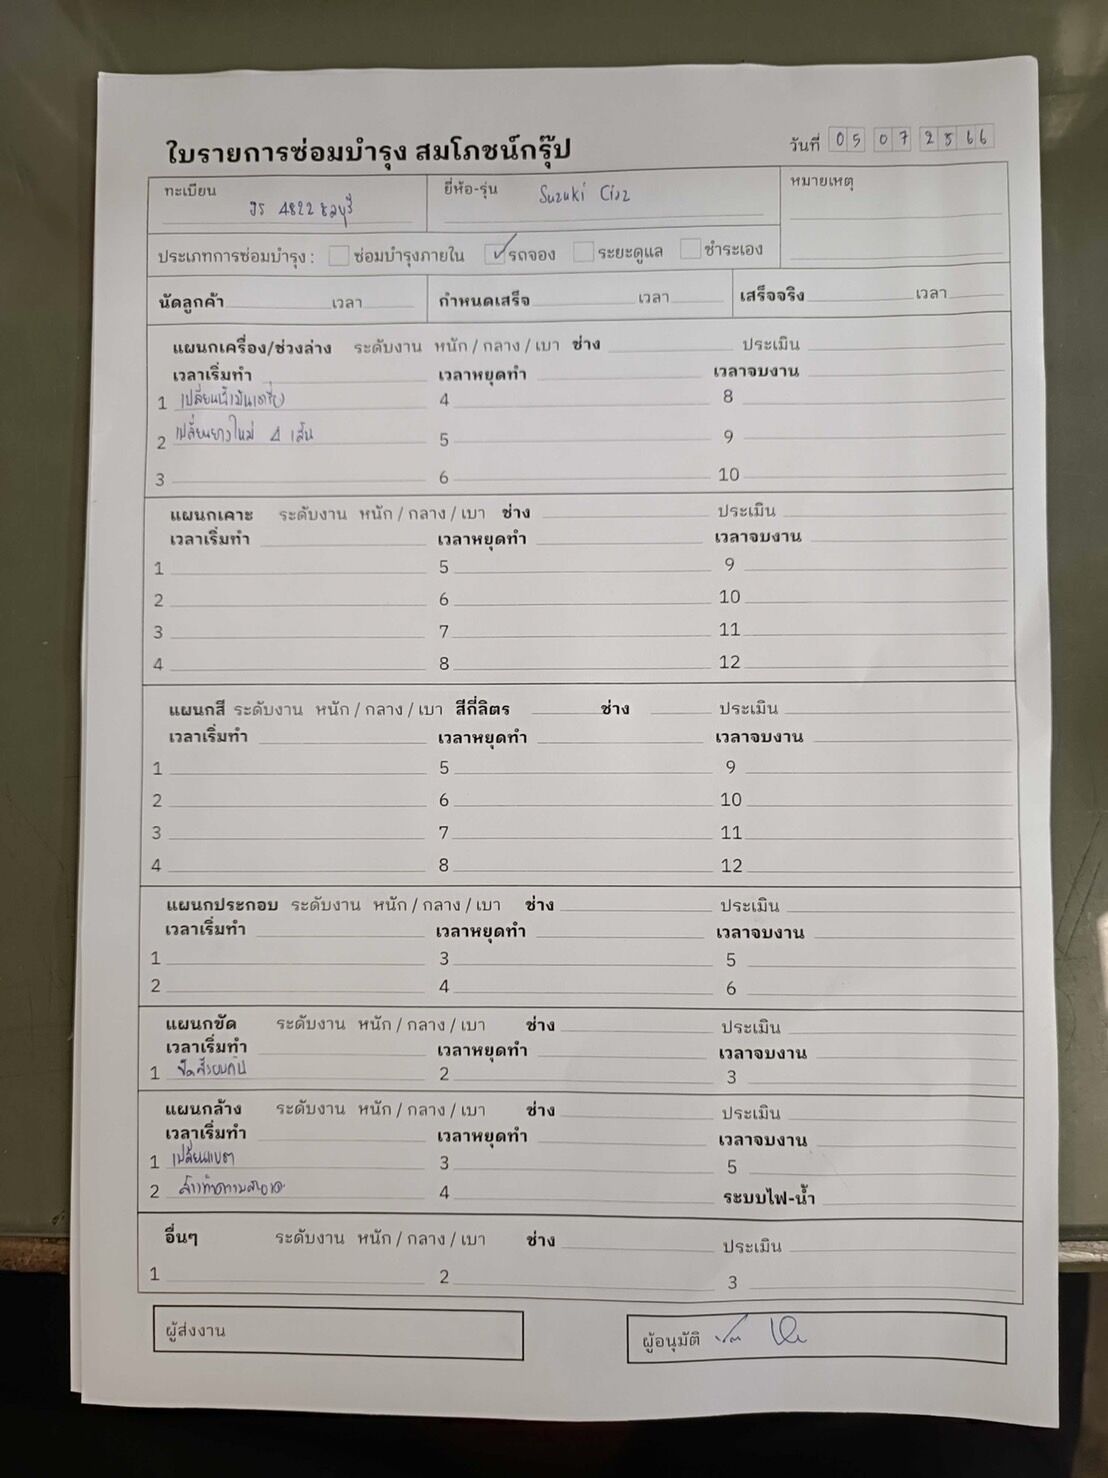 ใบรายการซ่อมบำรุง สมโภชน์กรุ๊ป
วันที่ 05 07 2566
ทะเบียน 4822 ชลบุรี
ยี่ห้อ-รุ่น Suzuki Ciaz
หมายเหตุ
ประเภทการซ่อมบำรุง : ซ่อมบำรุงภายใน ✓ รถจอง ระยะดูแล ชำระเอง
นัดลูกค้า เวลา กำหนดเสร็จ เวลา เสร็จจริง เวลา
แผนกเครื่อง/ช่วงล่าง ระดับงาน หนัก / กลาง / เบา ช่าง ประเมิน
เวลาเริ่มทำ เวลาหยุดทำ เวลาจบงาน
1 เปลี่ยนน้ำมันเครื่อง 4 8
2 เปลี่ยนยางใหม่ 4 เส้น 5 9
3 6 10
แผนกเคาะ ระดับงาน หนัก / กลาง / เบา ช่าง ประเมิน
เวลาเริ่มทำ เวลาหยุดทำ เวลาจบงาน
1 5 9
2 6 10
3 7 11
4 8 12
แผนกสี ระดับงาน หนัก / กลาง / เบา สีกี่ลิตร ช่าง ประเมิน
เวลาเริ่มทำ เวลาหยุดทำ เวลาจบงาน
1 5 9
2 6 10
3 7 11
4 8 12
แผนกประกอบ ระดับงาน หนัก / กลาง / เบา ช่าง ประเมิน
เวลาเริ่มทำ เวลาหยุดทำ เวลาจบงาน
1 3 5
2 4 6
แผนกขัด ระดับงาน หนัก / กลาง / เบา ช่าง ประเมิน
เวลาเริ่มทำ เวลาหยุดทำ เวลาจบงาน
1 ขัดสีรอบคัน 2 3
แผนกล้าง ระดับงาน หนัก / กลาง / เบา ช่าง ประเมิน
เวลาเริ่มทำ เวลาหยุดทำ เวลาจบงาน
1 เปลี่ยนแบต 3 5
2 ล้างทำความสะอาด 4 ระบบไฟ-น้ำ
อื่นๆ ระดับงาน หนัก / กลาง / เบา ช่าง ประเมิน
1 2 3
ผู้ส่งงาน
ผู้อนุมัติ